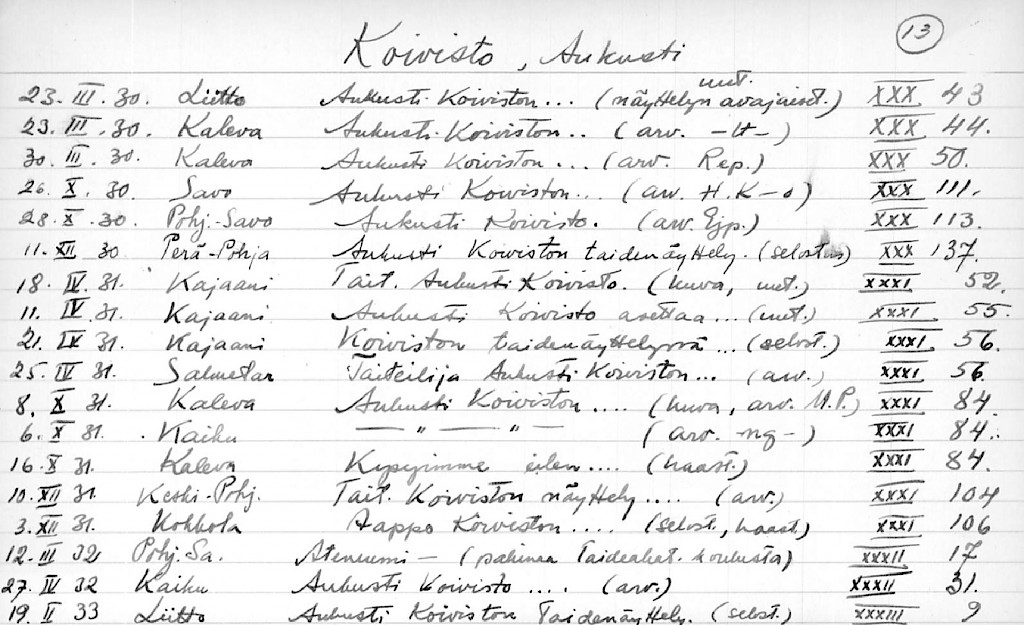 13
Koivisto, Aukusti
uut.
23. III. 30. Liitto Aukusti Koiviston... (näyttelyn avajaiset.) XXX 43
23. III. 30. Kaleva Aukusti Koiviston.. (arv. -lt-) XXX 44.
30. III. 30. Kaleva Aukusti Koiviston... (arv. Rep.) XXX 50.
26. X. 30. Savo Aukusti Koiviston... (arv. H.K-o) XXX 111.
28. X. 30. Pohj.-Savo Aukusti Koivisto. (arv. Ejp.) XXX 113.
11. XII 30. Perä-Pohja Aukusti Koiviston taidenäyttely. (selostus) XXX 137.
18. IV. 31. Kajaani Tait. Aukusti Koivisto. (kuva, uut.) XXXI 52.
11. IV. 31. Kajaani Aukusti Koivisto asettaa... (uut.) XXXI 55.
21. IV 31. Kajaani Koiviston taidenäyttelyssä... (selost.) XXXI 56.
25. IV 31. Salmetar Taiteilija Aukusti Koiviston... (arv.) XXXI 56.
8. X 31. Kaleva Aukusti Koiviston.... (kuva, arv. M.P.) XXXI 84.
6. X 31. Kaiku — " — " — (arv. -ng-) XXXI 84.
16. X 31. Kaleva Kysyimme eilen.... (haast.) XXXI 84.
10. XII 31. Keski-Pohj. Tait. Koiviston näyttely.... (arv.) XXXI 104
3. XII 31. Kokkola Aappo Koiviston.... (selost., haast.) XXXI 106
12. III 32 Pohj. Sa. Ateneumi — (pakinaa Taideakat. koulusta) XXXII 17
27. IV 32 Kaiku Aukusti Koivisto.... (arv.) XXXII 31.
19. II 33 Liitto Aukusti Koiviston Taidenäyttely. (selost.) XXXIII 9